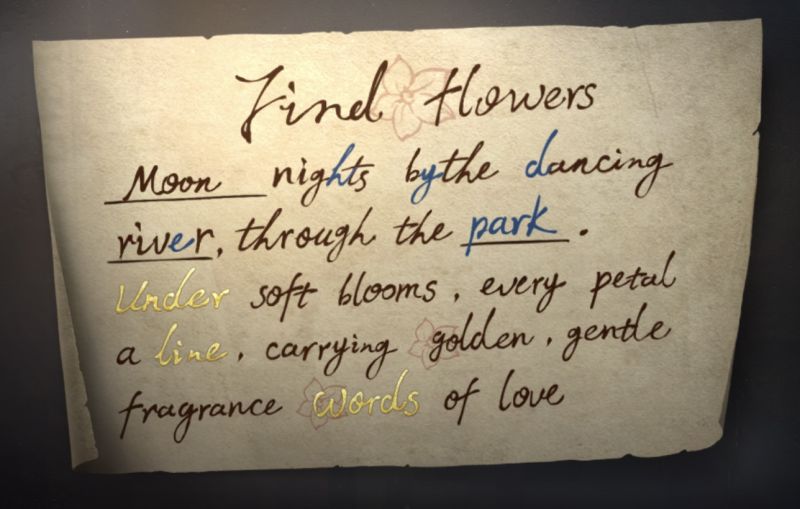 Find Flowers
Moon nights by the dancing
river, through the park.
Under soft blooms, every petal
a line, carrying golden, gentle
fragrance words of love